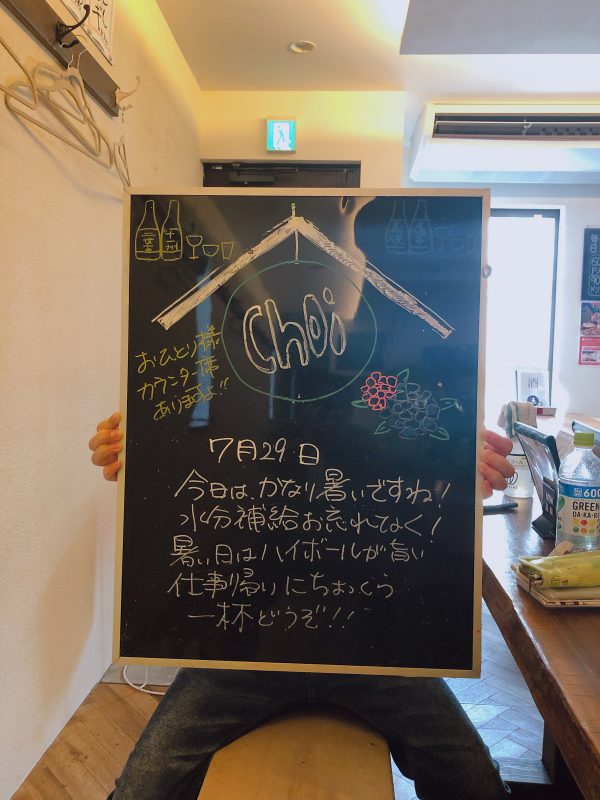 Choi
おひとり様
カウンター席
ありますよ!!
7月29日
今日は、かなり暑いですね!
水分補給お忘れなく!
暑い日はハイボールが旨い
仕事帰りにちょっくら
一杯どうぞ!!
GREEN
DA・KA・RA
600
酒